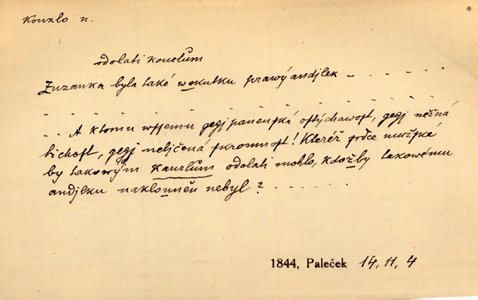 Kouzlo n.
odolati kouzlům
Zuzanka byla také w skutku prawý andjlek - . . . . .
. . . . . . . . . . . . . . .
. . A k tomu wssemu gegj panenská ostýchawost, gegj něžná
tichost, gegj neljčená uprjmnost! Kteréž srdce mužské
by takowým kauzlům odolati mohlo, kdožby takowému
andjlku nakloněn nebyl? . . . . . .
1844, Paleček 14, 11, 4